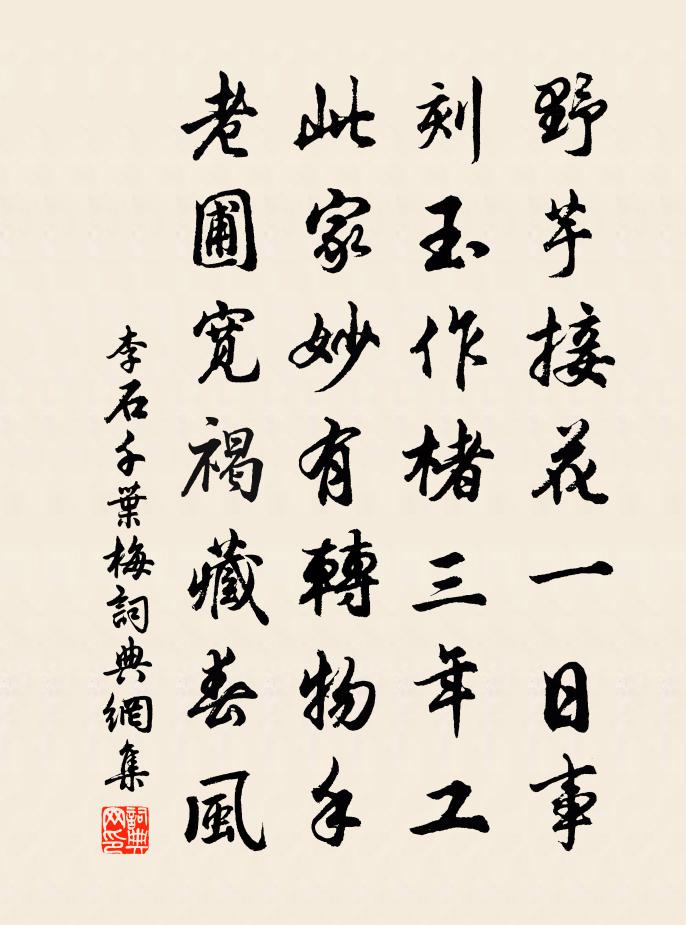 野芋接花一日事
刻玉作楮三年工
此家妙有轉物手
老圃寬褐藏春風
李石千葉梅詞典網集
詞典網印